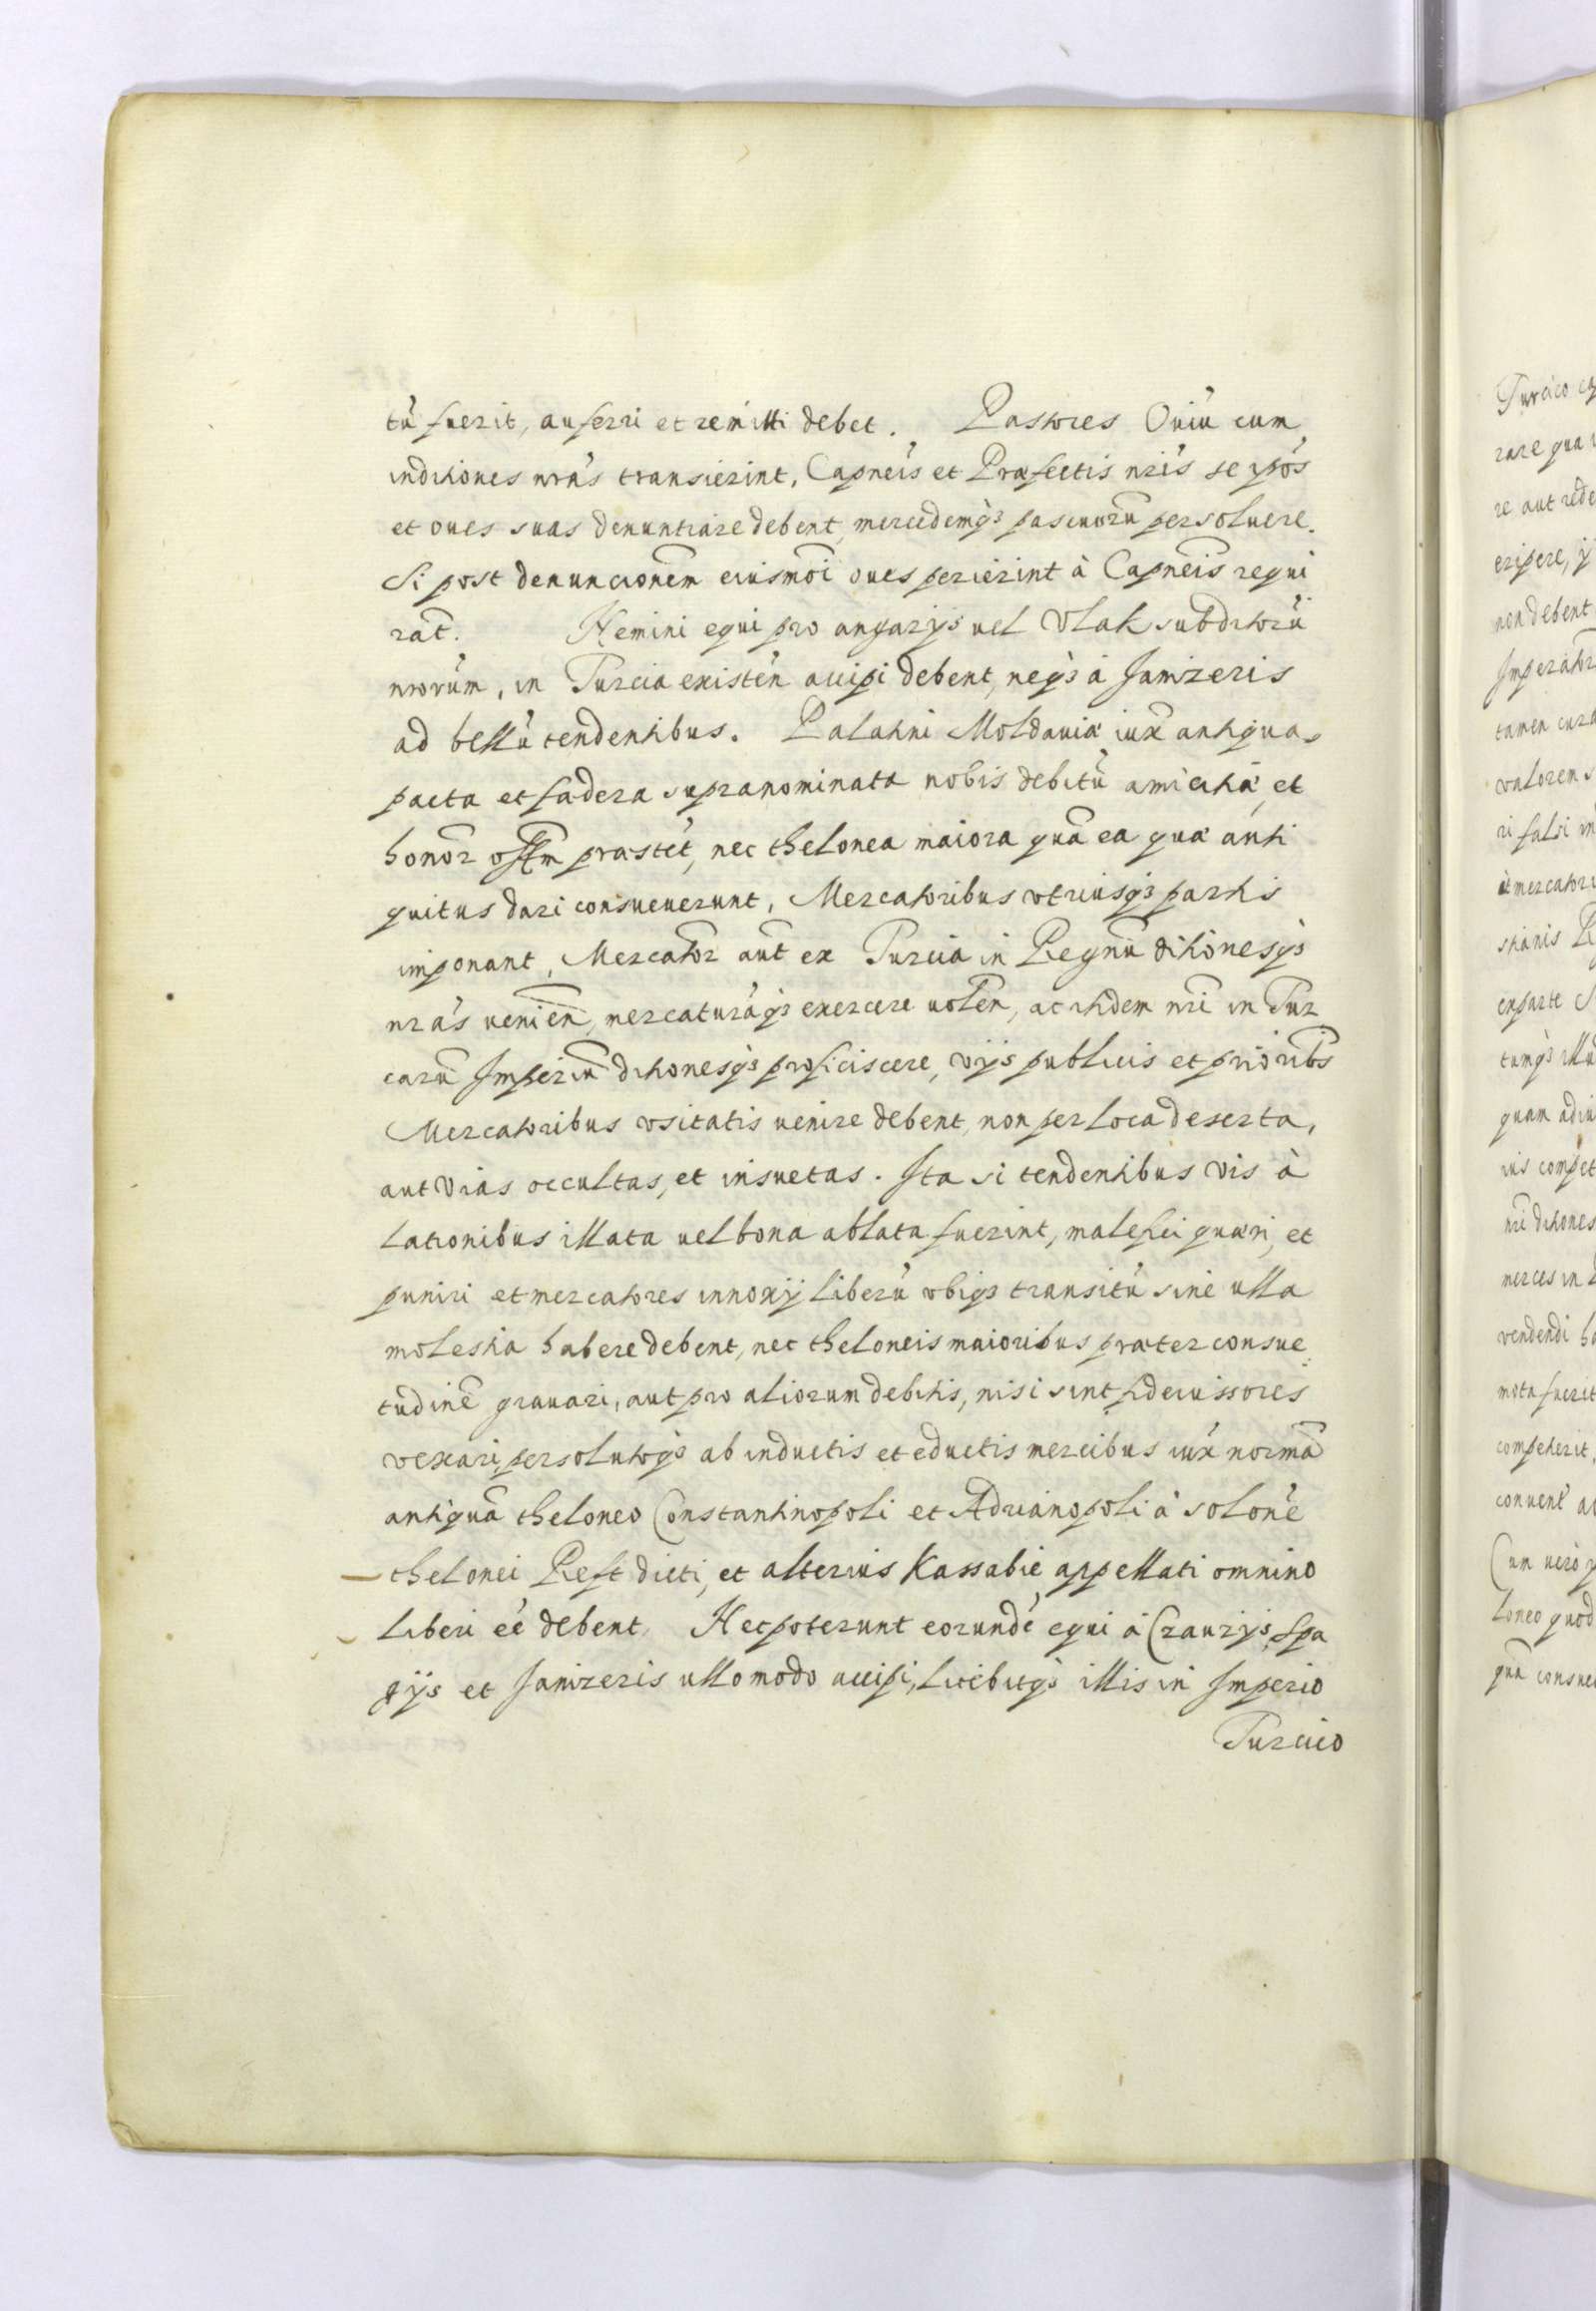 tù fuerit, auferri et remitti debet. Pastores Oviù cum
inditiones nrás transierint, Capneis et Præfectis nris se ipos
et oues suas denuntiare debent, mercedemq3 pascuorũ persoluere.
Si post denuncionem eiusmoi oues perierint à Capneis requi
rat. Nemini equi pro angarijs uel Vlak subditorũ
nrorum, in Turcia existen accipi debent, neq3 à Janizeris
ad bellũ tendentibus. Palatini Moldauiæ iux antiqua
pacta et fædera supranominata nobis debitũ amicitiæ, et
honor præstét, nec thelonea maiora quã ea quæ anti
quitus dari consueuerunt, Mercatoribus vtriusq3 partis
imponant, Mercator aut ex Turcia in Regnũ ditionesq3
nrás venien, mercaturáq3 exercere uolen, ac itidem nri in Tur
carũ Imperiũ ditionesq3 proficiscere, vijs publicis et prioribs
Mercatoribus vsitatis uenire debent, non per loca deserta,
aut vias occultas, et insuetas. Ita si tendentibus vis à
Latronibus illata uel bona ablata fuerint, malefici quæri, et
puniri et mercatores innoxij liberũ vbiq3 transitũ sine ulla
molestia habere debent, nec theloneis maioribus præter consue
tudinẽ grauari, aut pro aliorum debitis, nisi sint fideiussores
vexari, persolutoq3 ab inductis et eductis mercibus iux normã
antiquã theloneo Constantinopoli et Adrianopoli à soloné
thelonei Reft dicti, et alterius Kassabie appellati omnino
Liberi éé debent. Nec poterunt eorundé equi à Czaurijs, Spa
gijs et Janizeris ullo modo accipi, Licebitq3 illis in Imperio
Turcico
Turcico
rare qua
re aut rede
eripere, ij
non debent
Imperator
tamen cura
valorem s
mercator
stianis
quam adiu
ius compet
nri ditiones
merces in
vendendi
mota fuerit
competerit,
Cum uero
loneo quod
quã consue